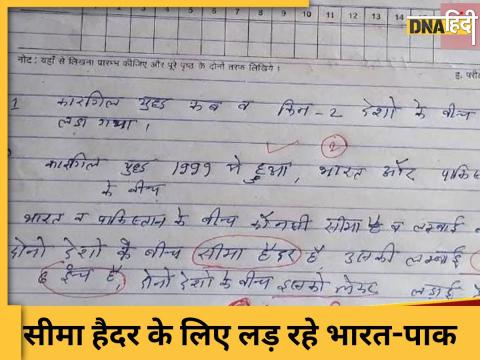 DNAहिंदी
1 2 3 4 5 6 7 8 9 10 11 12 13 14
नोट : यहाँ से लिखना प्रारम्भ कीजिए और पूरे पृष्ठ के दोनों तरफ लिखिये ।
ह. परी
1 कारगिल युद्ध कब व किन-2 देशो के बीच
लड़ा गया।
2
कारगिल युद्ध 1999 मे हुआ, भारत और पाकि
के बीच
भारत व पाकिस्तान के बीच कौनसी सीमा है व लम्बाई
दोनो देशो के बीच सीमा हैदर है, उसकी लम्बाई
6 इंच है, दोनो देशो के बीच इसको लेकर लड़ाई
सीमा हैदर के लिए लड़ रहे भारत-पाक